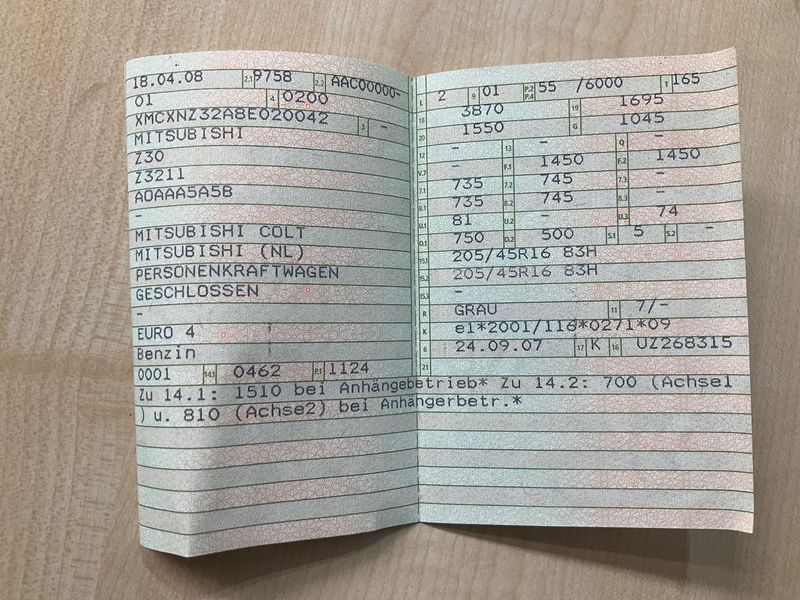 18.04.08 2.1 9758 2.2 AAC00000-
01 4 0200
XMCXNZ32A8E020042 3 -
MITSUBISHI
Z30
Z3211
AOAAA5A5B
-
MITSUBISHI COLT
MITSUBISHI (NL)
PERSONENKRAFTWAGEN
GESCHLOSSEN
-
EURO 4
Benzin
0001 14.1 0462 P.1 1124
L 2 9 01 P.2 P.4 55 /6000 T 165
18 3870 19 1695
20 1550 G 1045
12 - 13 - Q -
V.7 - F.1 1450 F.2 1450
7.1 735 7.2 745 7.3 -
8.1 735 8.2 745 8.3 -
U.1 81 U.2 - U.3 74
O.1 750 O.2 500 S.1 5 S.2 -
15.1 205/45R16 83H
15.2 205/45R16 83H
15.3 -
R GRAU 11 7/-
K e1*2001/116*0271*09
6 24.09.07 17 K 16 UZ268315
21
Zu 14.1: 1510 bei Anhängebetrieb* Zu 14.2: 700 (Achse1
) u. 810 (Achse2) bei Anhängerbetr.*